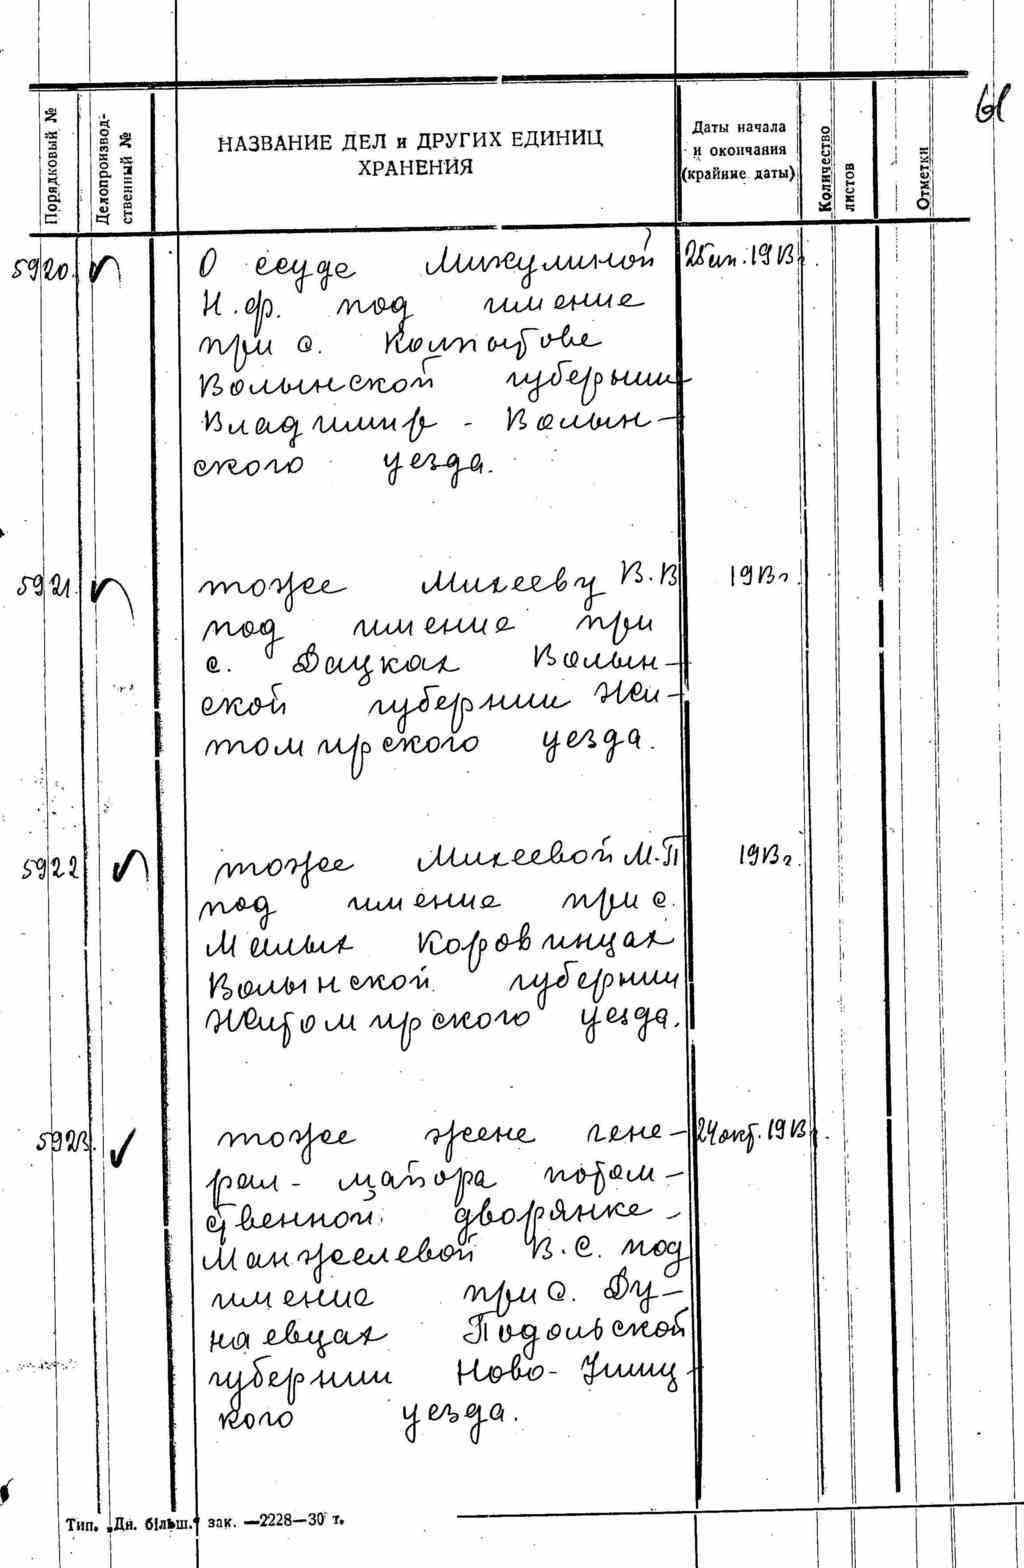 61
Порядковый №
Делопроизвод-
ственный №
НАЗВАНИЕ ДЕЛ и ДРУГИХ ЕДИНИЦ
ХРАНЕНИЯ
Даты начала
и окончания
(крайние даты)
Количество
листов
Отметки
5920. О ссуде Микулиной 1913
Н.Ф. под имение
при с. Колпытове
Волынской губернии
Владимир - Волын-
ского уезда.
5921. тоже Михееву В.В 1913г.
под имение при
с. Дацках Волын-
ской губернии Жи-
томирского уезда.
5922 тоже Михеевой М.П 1913г.
под имение при с.
Малых Коровинцах
Волынской губернии
Житомирского уезда.
5923. тоже жене гене- 24 окт. 1913г.
рал - майора потом-
ственной дворянке
Манжелевой В.С. под
имение при с. Ду-
наевцах Подольской
губернии Ново-Ушиц-
кого уезда.
Тип. „Дн. більш." зак. —2228—30 т.